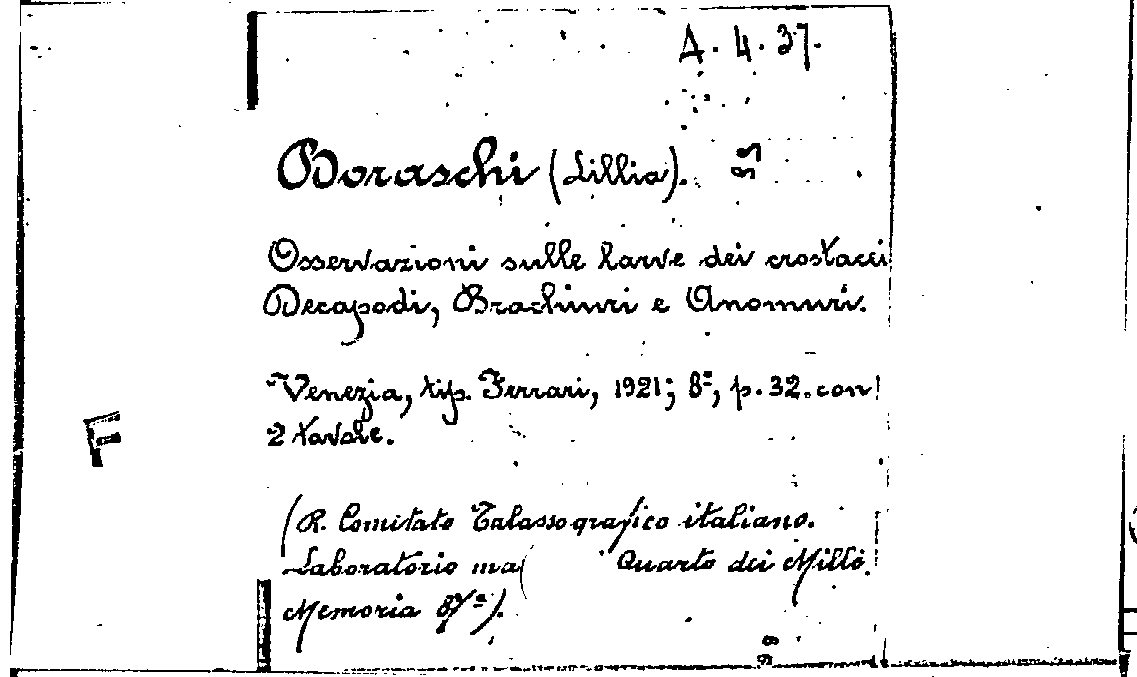 A. 4. 37.
Boraschi (Lillia).
Osservazioni sulle larve dei crostacei
Decapodi, Brachiuri e Anomuri.
Venezia, tip. Ferrari, 1921; 8º, p. 32. con
2 tavole.
F
(R. Comitato Talassografico italiano.
Laboratorio ma Quarto dei Mille.
Memoria 87ª).